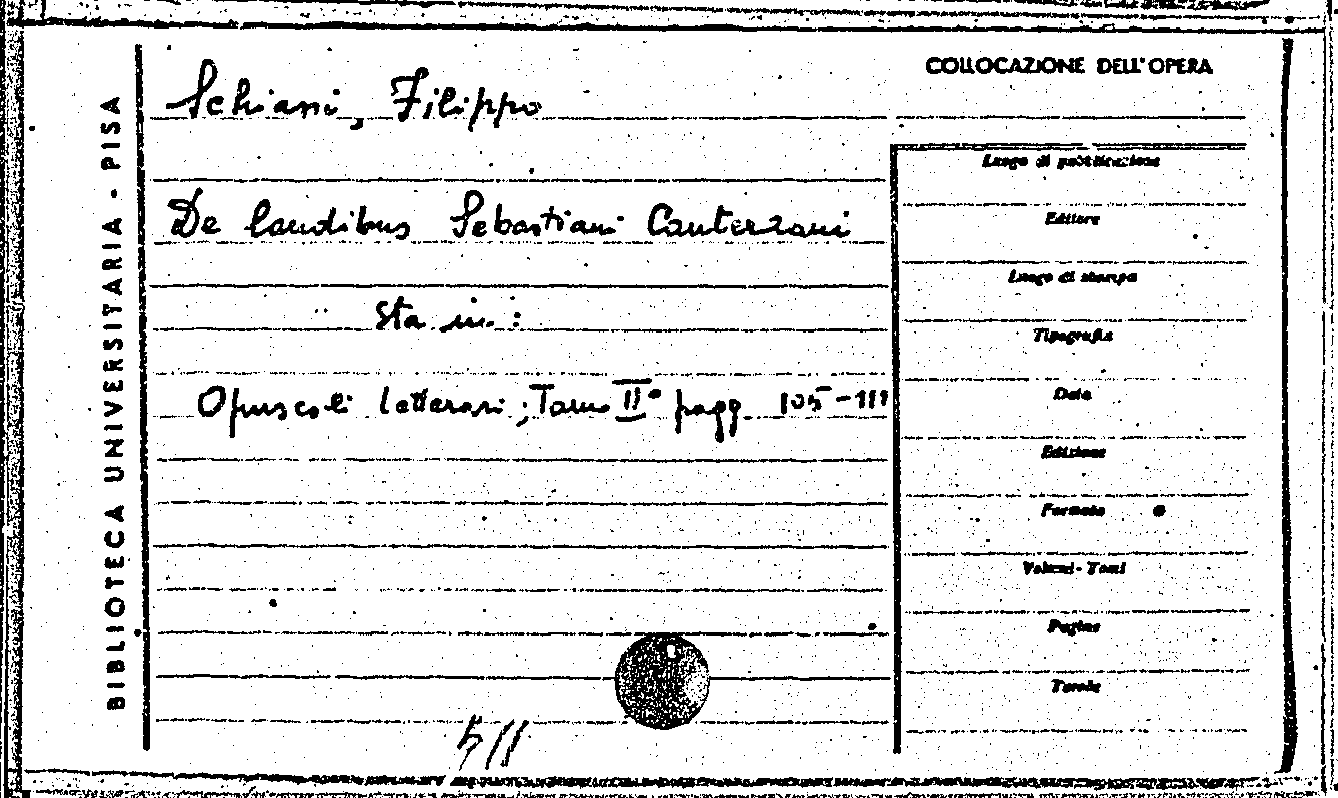 BIBLIOTECA UNIVERSITARIA - PISA
Schiassi, Filippo
De laudibus Sebastiani Canterzani
Sta in:
Opuscoli letterari; Tomo II° pagg. 105-111
COLLOCAZIONE DELL'OPERA
Luogo di pubblicazione
Editore
Luogo di stampa
Tipografia
Data
Edizione
Formato
Volumi - Tomi
Pagine
Tavole